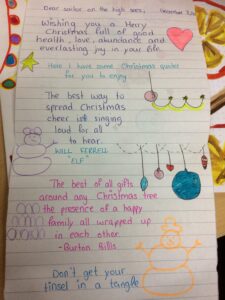 Dear sailor on the high seas, December
Wishing you a Merry
Christmas full of good
health, love, abundance and
everlasting joy in your life.
Here I have some Christmas quotes
for you to enjoy
The best way to
spread Christmas
cheer is singing
loud for all
to hear.
WILL FERRELL
"ELF"
The best of all gifts
around any Christmas tree
the presence of a happy
family all wrapped up
in each other
-Burton Hills
Don't get your
tinsel in a tangle